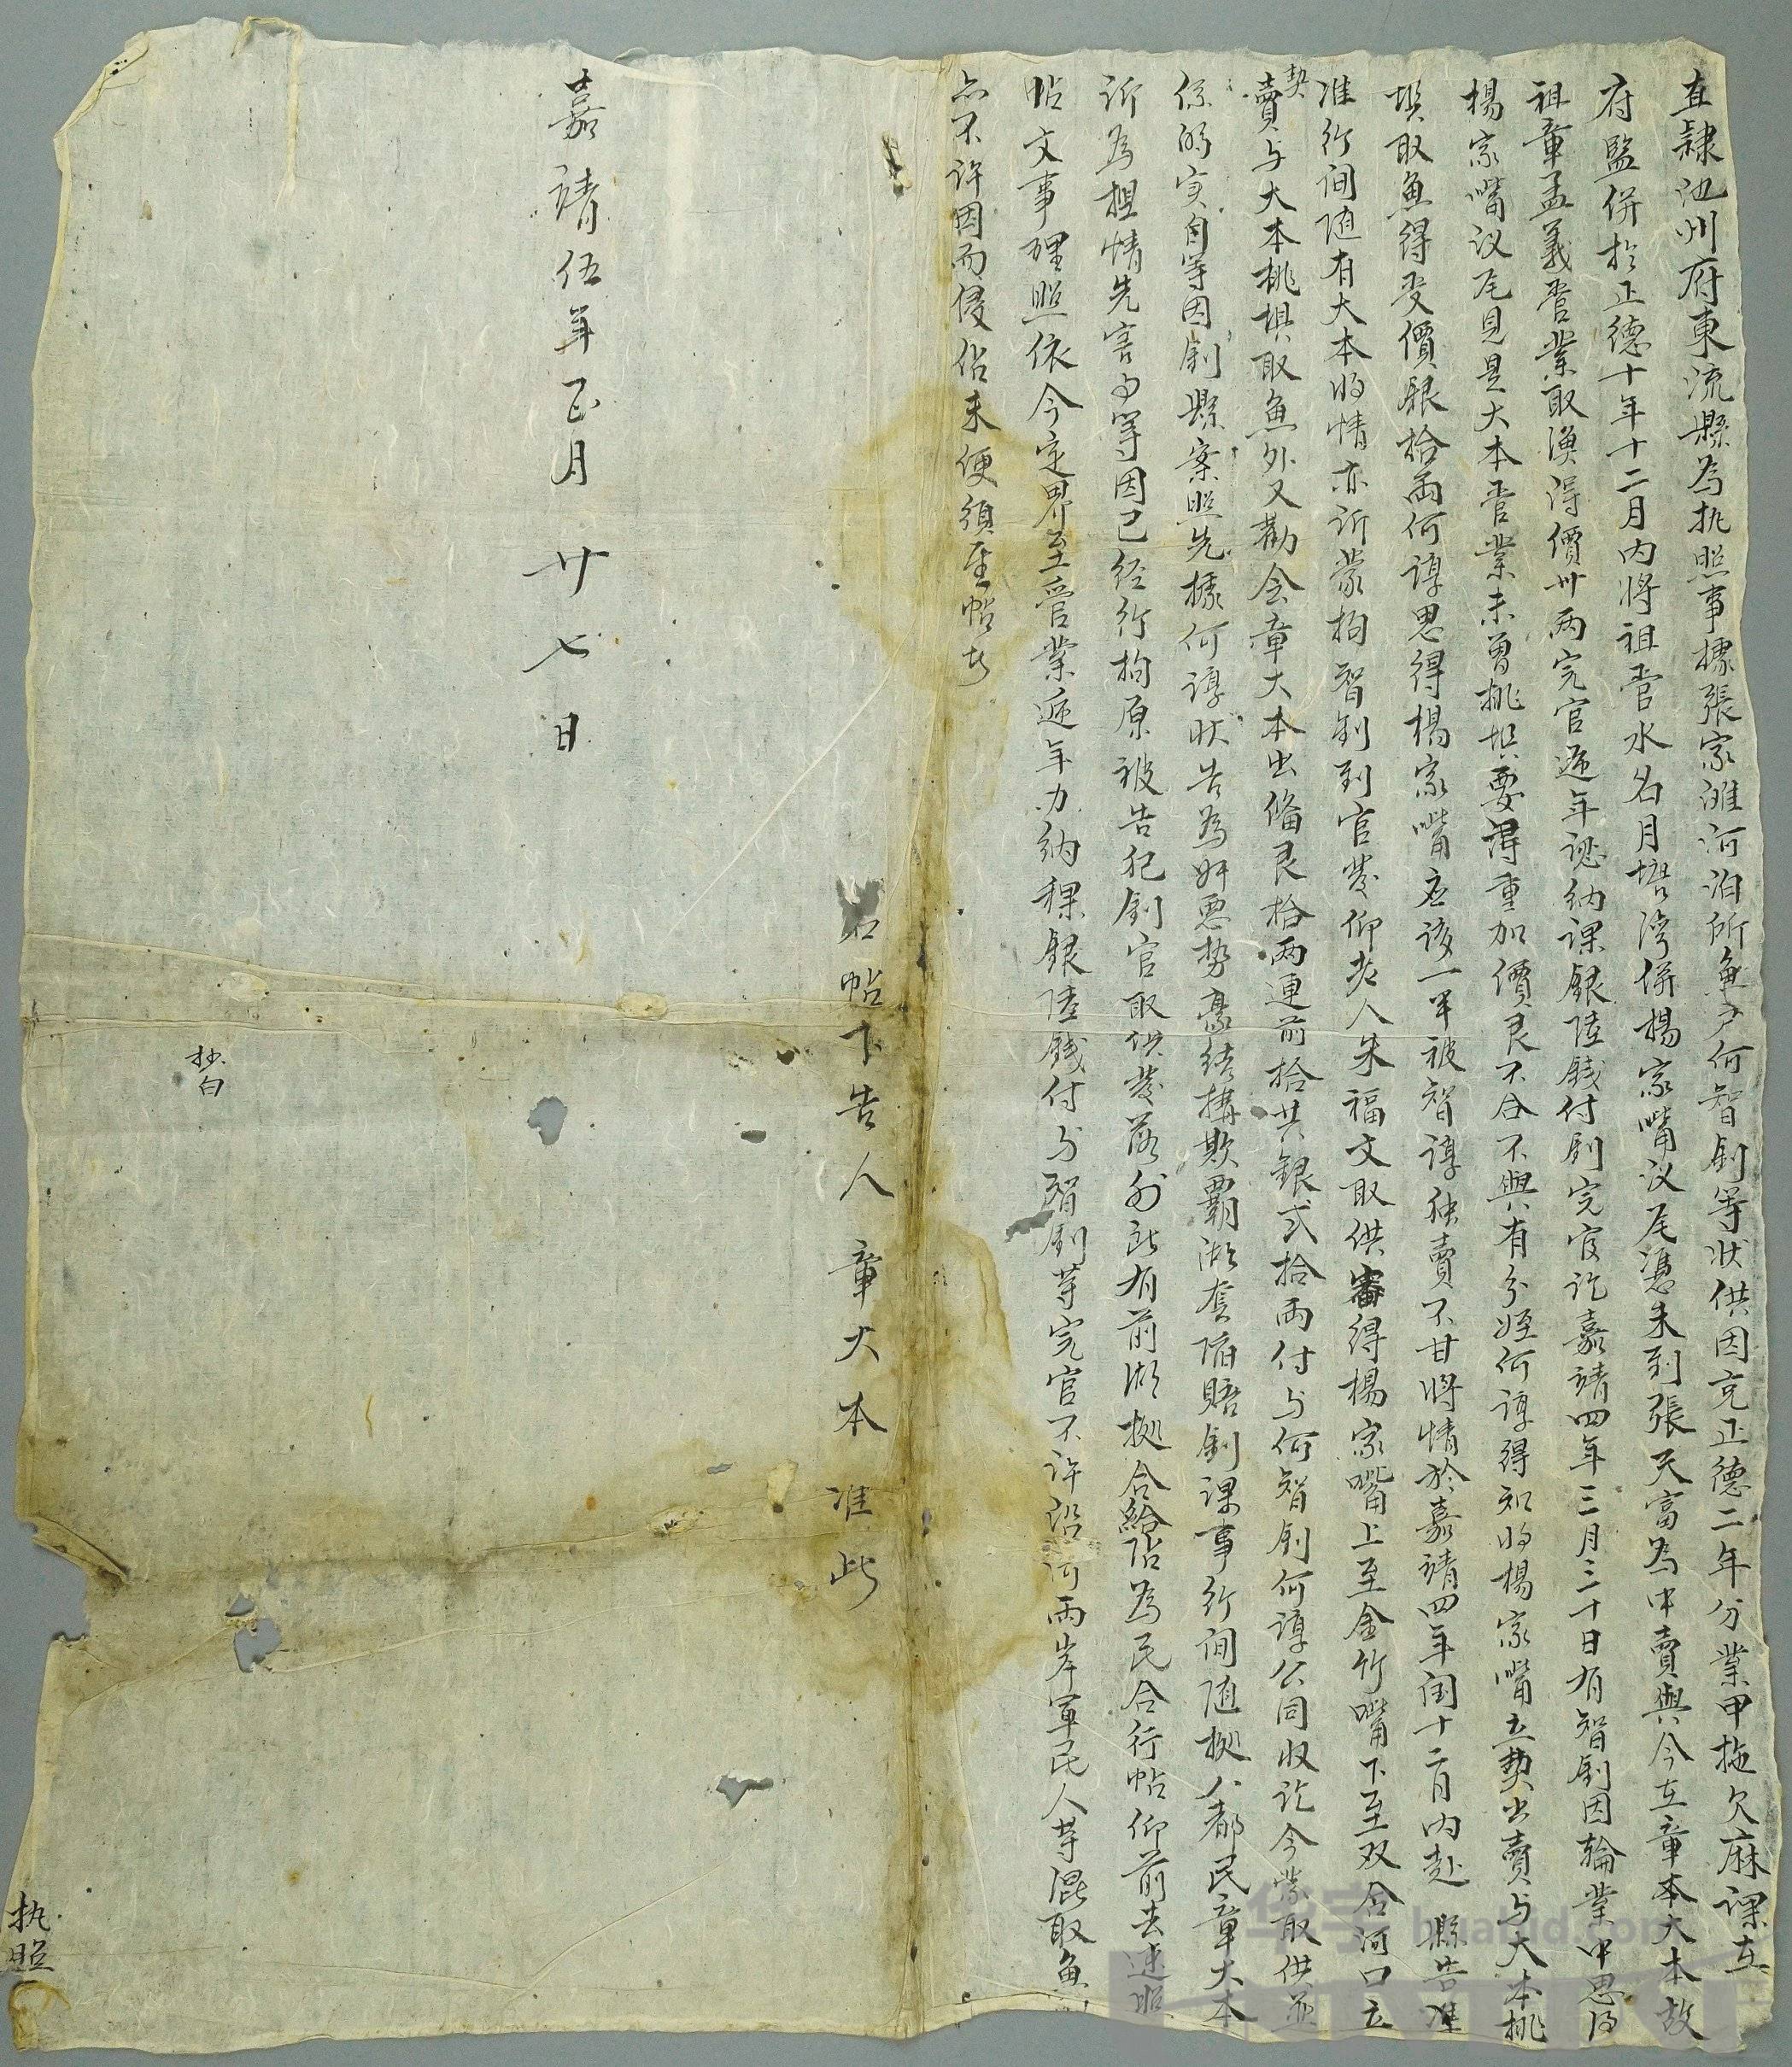 直隸池州府東流縣為执照事據張家灘河泊所魚户何智釗等状供因充正德二年分業甲拖欠麻课在
府監併於正德十年十二月内將祖管水名月塘湾併楊家嘴议尾凴朱到張天富為中賣與今在章本大本故
祖章孟義管業取漁得價卅两完官逓年認納课銀陸錢付釗完官讫嘉靖四年三月三十日有智釗因輪業中思得
楊家嘴议尾見是大本管業未曾挑埧要得重加價艮不合不與有分姪何諄得知将楊家嘴立契出賣与大本挑
埧取魚得受價銀拾两何諄思得楊家嘴应该一半被智諄独賣不甘將情於嘉靖四年闰十二月内赴 縣告准
准行间随有大本将情亦诉蒙拘智釗到官蒙仰老人朱福文取供審得楊家嘴上至金竹嘴下至双合河口立
契賣与大本挑埧取魚外又勸令章大本出俻艮拾两連前拾共銀弍拾两付与何智釗何諄公同收讫今蒙取供並
係的实自等因釗縣案照先據何諄状告為奸悪势豪结搆欺覇湖套陷賠釗课事行间随拠八都民章大本
诉為担情先害事等因已经行拘原被告犯釗官取供发落外所有前湖拠合給帖為民合行帖仰前去速照
帖文事理照依今定界至管業逓年办納稞銀陸錢付与智釗等完官不许沿河两岸軍民人等混取魚
亦不许因而侵佔未便須至帖者
右帖下告人章大本准此
嘉靖伍年正月廿七日
抄白
执照